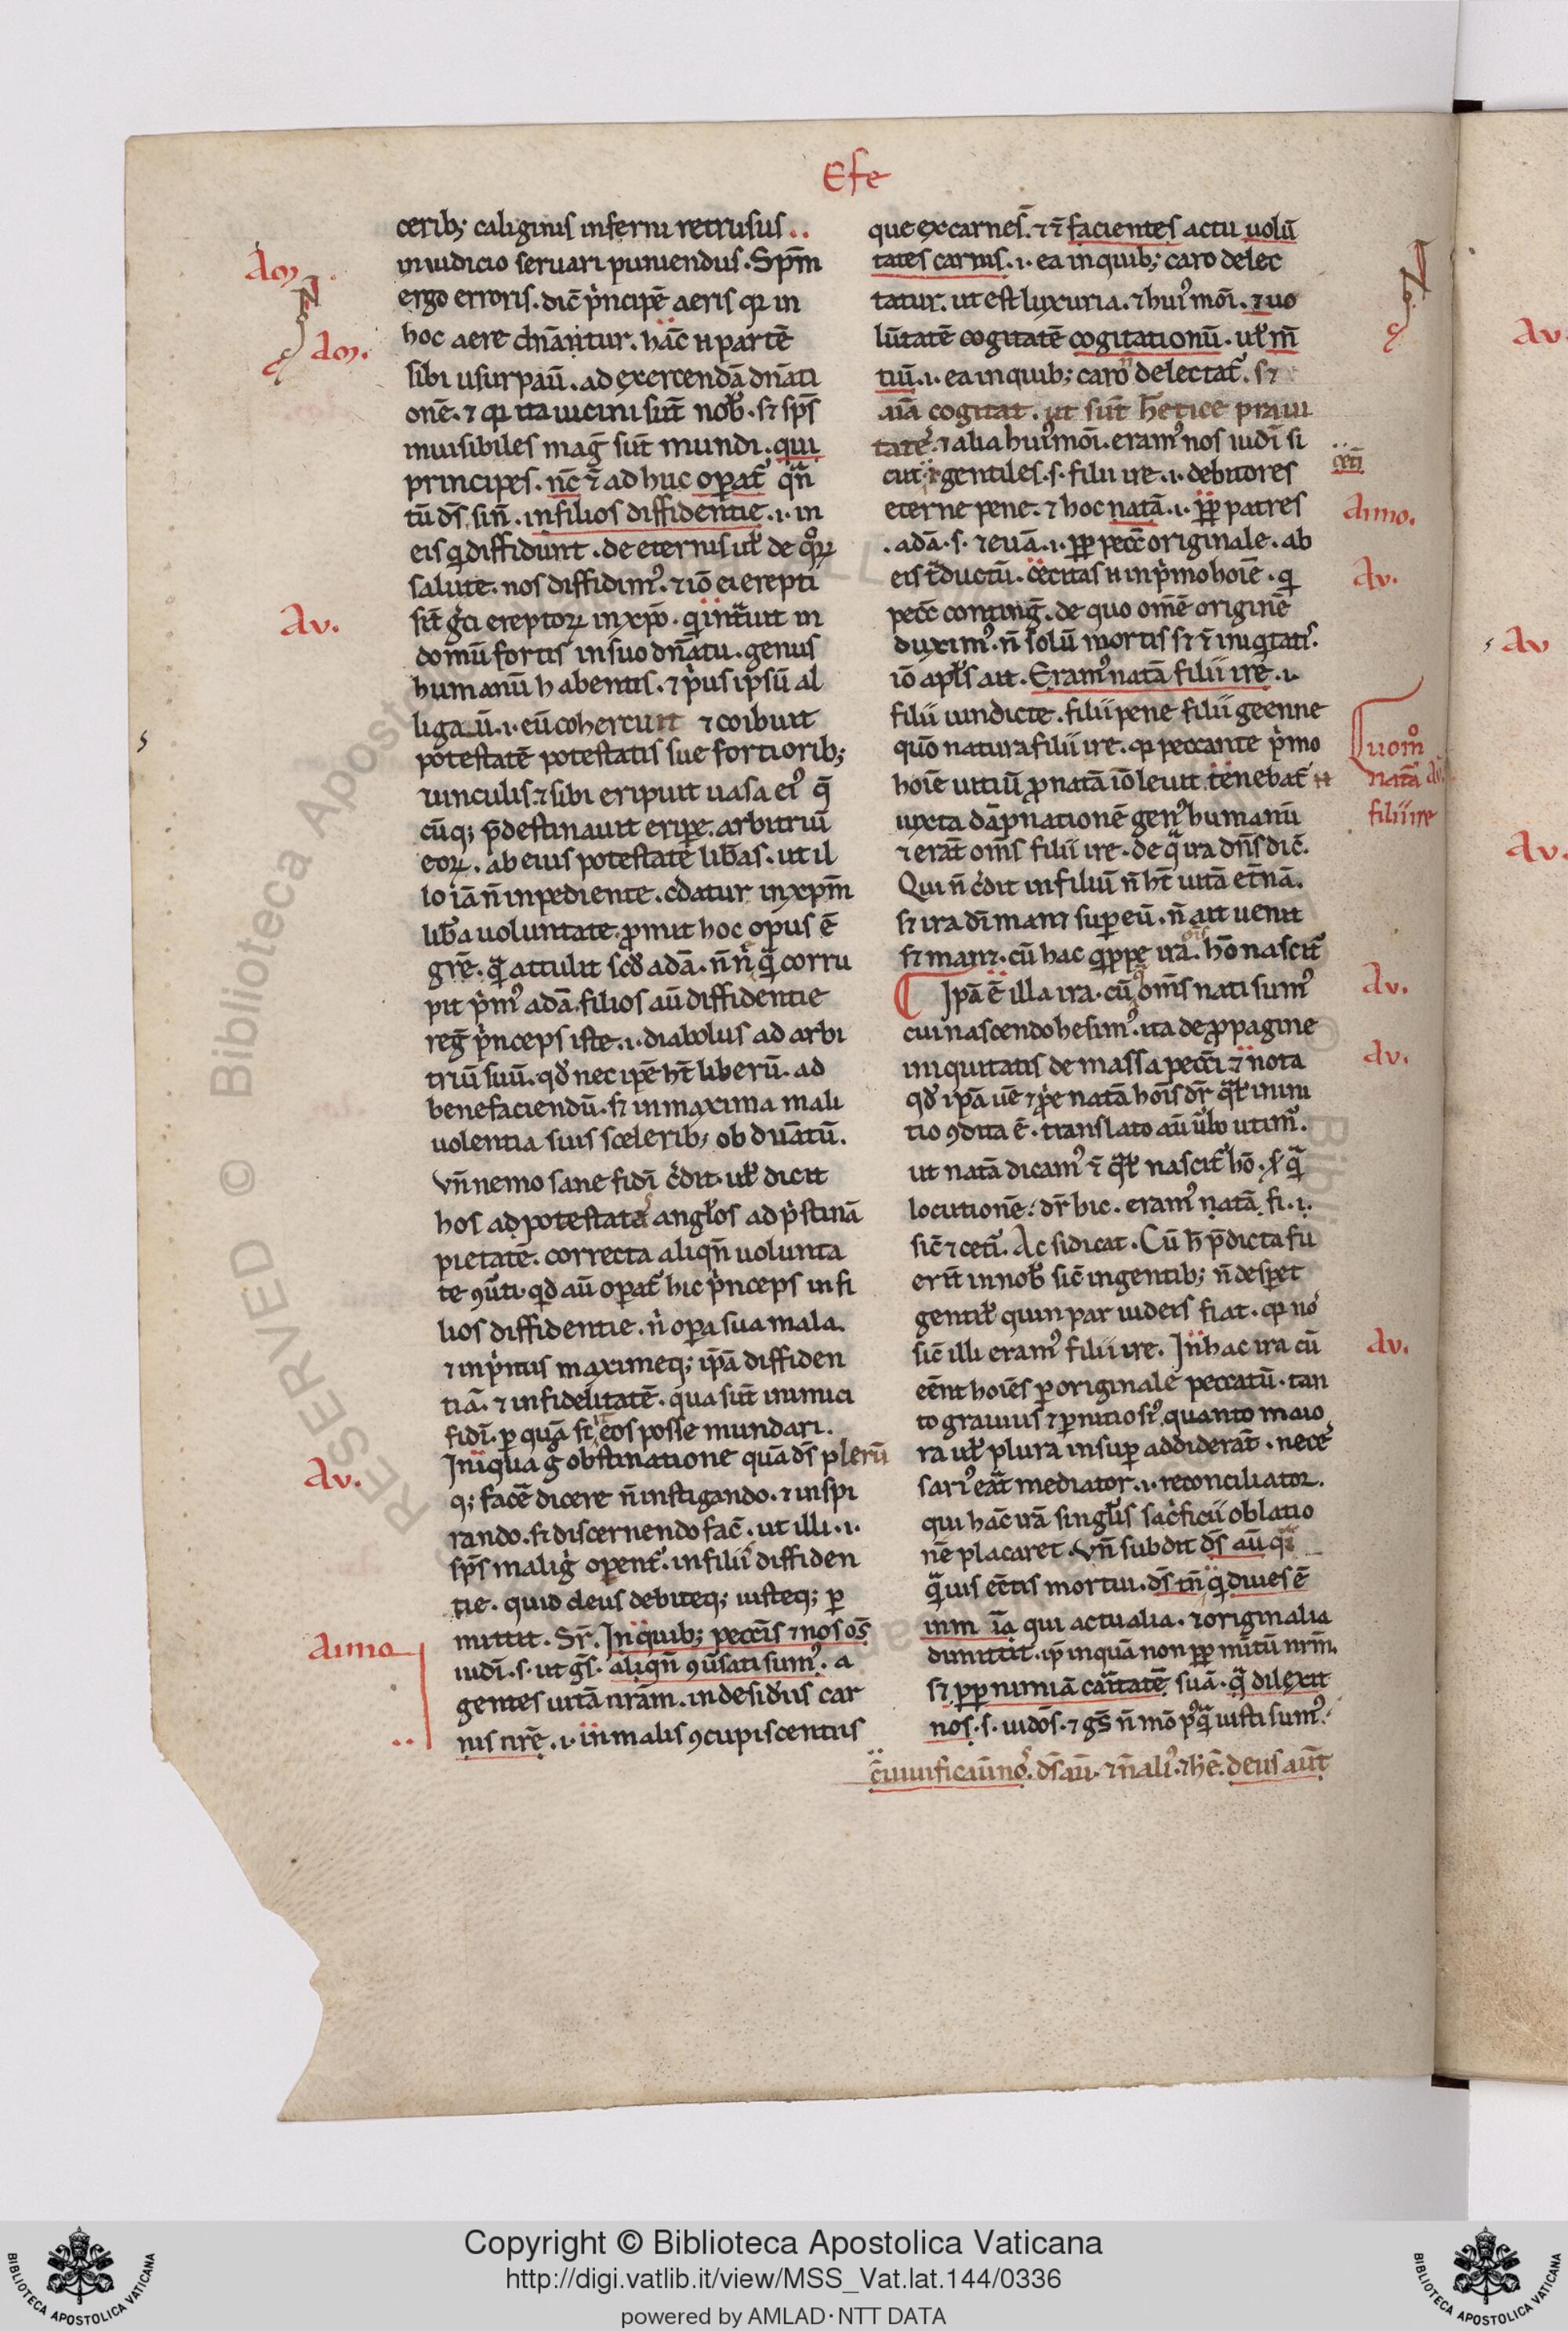 Efe
cerib; caliginis inferni retrusus..
in iudicio seruari puniendus. Spm̄
ergo erroris. dic̄ p̍ncipē aeris qꝛ in
hoc aere dn̄antur. hāc n partē
sibi usurpaū. ad exercendā dn̄ati
onē. ⁊ qꝛ ita uicini sūt nob̄. sꝫ sp̄s
inuisibiles mag̅ sūt mundi. qui
principes. nc̄ ⁊̄ ad huc oꝑat᷑ qn̄
tū ds̄ sin̄. in filios diffidentie .i. in
eis q diffidunt. de eternis ul̵ de
salute. nos diffidim᷒. ⁊ iō ei erepti
sūt gr̄a ereptoꝝ in xp̄o. q intrauit in
domū fortis in suo dn̄atu. genus
humanū habentis. ⁊ p̍us ipsū al
ligauū .i. eū cohercuit ⁊ coibuit
potestatē potestatis sue fortiorib;
uinculis ⁊ sibi eripuit uasa ei᷒ q̄
cūq; p̄destinauit eriꝑe. arbitriū
eoꝝ. ab eius potestate lib̄as. ut il
lo iā n̄ inpediente. cr̄datur in xp̄m
lib̄a uoluntate. ꝓmit hoc opus ē
gr̄e. qā attulit scd̄s adā. n̄ n̄ qā corru
pit p̍m᷒ adā. filios aū diffidentie
reg̅ p̍nceps iste .i. diabolus ad arbi
triū suū. qd̄ nec ipē ht̄ liberū. ad
benefaciendū. sꝫ in maxima mali
uolentia suis scelerib; obduatū.
vn̄ nemo sane fidī c̍dit. ul̵ dicit
hos ad potestatē angl̵os ad p̍stinā
pietatē. correcta aliqn̄ uolunta
te ꝯūti. qd̄ aū oꝑat᷑ hic p̍nceps in fi
lios diffidentie. n̍ oꝑa sua mala
⁊ inp̍mis maximeq; ip̄ā diffiden
tiā. ⁊ infidelitatē. qua sūt inimici
fidī. ꝑ quā st̄ eos posse mundari.
In qua g obstinatione quā ds̄ plerū
q; facē dicere n̄ instigando. ⁊ inspi
rando. sꝫ discernendo fac̄. ut illi .i.
sp̄s malig̍ oꝑent᷑. in filii diffiden
tie. quid deus debiteq; iusteq; ꝑ
mittit. Sr̄. In quib; pecc̄is ⁊ nos os̄
iudī .s. ut gs̄. aliqn̄ ꝯūsati sum᷒. a
gentes uitā nrām. in desidiis car
nis nrē .i. in malis ꝯcupiscentiis
que ex carne s̄. ⁊ ⁊̄ facientes actu uolū
tates carnis .i. ea in quib; caro delec
tatur. ut est luxuria. ⁊ hui᷒ moī. ⁊ uo
lūtatē cogitatē cogitationū. ul̵ m̄
tiū .i. ea in quib; caro n̄ delectat᷑. sꝫ
aīa cogitat. ut sūt h̄etice praui
tatē. ⁊ alia hui᷒ moī. eram᷒ nos iudī si
cut ⁊ gentiles .s. filii ire .i. debitores
eterne pene. ⁊ hoc natā .i. ꝓꝑ patres
.adā .s. ⁊ euā .i. ꝓꝑ pecc̄ originale. ab
eis t̄ductū. cecitas n in p̍mo hoīe. q
pecc̄ conting̅. de quo om̄ē originē
duxim᷒. n̄ solū mortis sꝫ ⁊̄ iniqtatis.
iō apl̵s ait. Eram᷒ natā filii ire .i.
filii uindicte. filii pene filii geenne
quō natura filii ire. qꝛ peccante p̍mo
hoīe uitiū ꝓ natā iōleuit. tenebat᷑ n
iuxta dāpnationē gen᷒ humanū
⁊ erāt om̄s filii ire. de qā ira dn̄s dic̄.
Qui n̄ c̍dit in filiū n̄ ht̄ uitā etn̄ā.
sꝫ ira dī manꝫ suꝑ eū. n̄ ait uenit
sꝫ manꝫ. cū hac qippe ira ois̄ hō nascit᷑
Ipā ē illa ira. cū om̄s nati sum᷒
cui nascendo hesim᷒. ita de ꝓpagine
iniquitatis de massa pecc̄i ⁊ nota
qd̄ ipā
tio ꝯdita ē. translato aū ūbo utim᷒.
ut natā dicam᷒ ⁊̄ ql̵ nascit᷑ hō. s̵ qā
locutionē. dr̄ hic. eram᷒ natā fi .i.
sic̄ ⁊ cet̄i. Ac si dicat. Cū h̄ p̄dicta fu
erīt in nob̄ sic̄ in gentib; n̄ desꝑet
gentil̵ quin par iudeis fiat. qꝛ nō
sic̄ illi eram᷒ filii ire. In hac ira cū
eēnt hoīes ꝑ originale peccatū. tan
to grauius ⁊ ꝑnitiosi᷒ quanto maio
ra ul̵ plura insuꝑ addiderāt. necē
sari᷒ erat mediator .i. reconciliator.
qui hāc irā singl̵is sac̍ficii oblatio
nē placaret. vn̄ subdit ds̄ aū q
qā uis eētis mortui. ds̄ tn̄ q diues ē
in m̄ īa qui actualia. ⁊ originalia
dimittit. ip̄ inquā non ꝓꝑ m̄itū nrm̄.
sꝫ ꝓꝑ nimiā caritatē suā. qā dilexit
nos .s. iudōs. ⁊ gs̄ n̄ mō p᷒qā iusti sum᷒.
ꝯuiuificaū nos. ds̄ aū. ⁊ n̄ ali᷒. ⁊ h̄ ē. deus aūt
Am.
Am.
Av.
Av.
Aimo
cet̄i
Aimo.
Av.
Quom̊
natā
filii ire
Av.
Av.
Av.
Av.
Av
Av.
RESERVED © Biblioteca Aposto
© Bibli
Copyright © Biblioteca Apostolica Vaticana
http://digi.vatlib.it/view/MSS_Vat.lat.144/0336
powered by AMLAD·NTT DATA
BIBLIOTECA APOSTOLICA VATICANA
BIBLIOTECA APOSTOLICA VATICANA